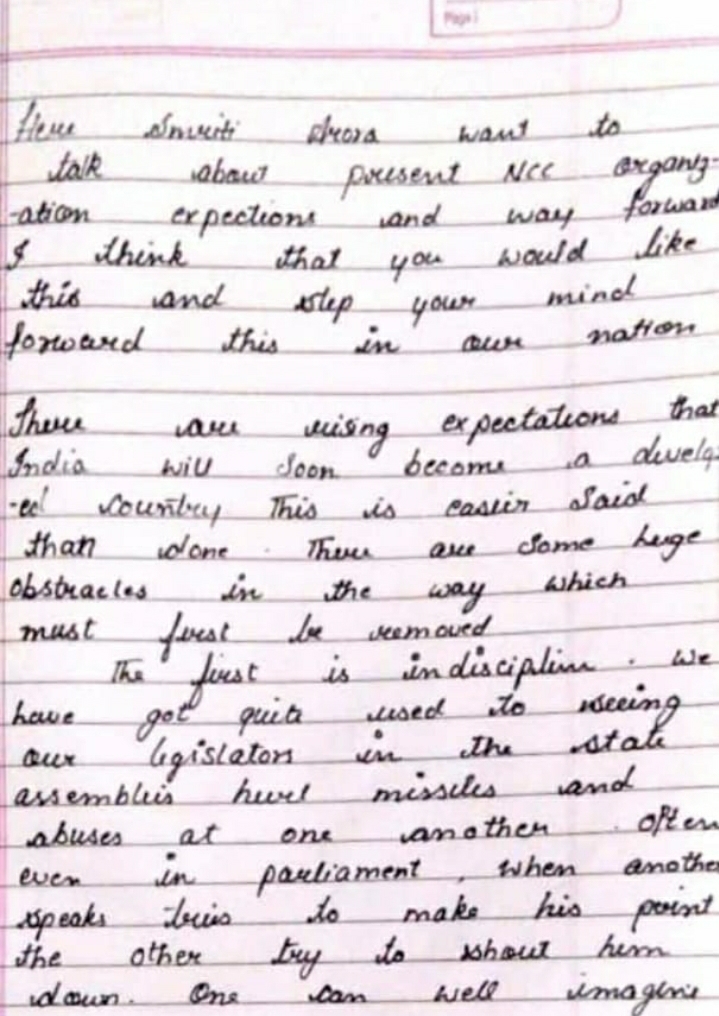 Page:
Here Smriti Arora want to
talk about present NCC organiz-
-ation expections and way forward
I think that you would like
this and step your mind
forward this in our nation
There are rising expectations that
India will soon become a develop
-ed country This is easier said
than done. There are some huge
obstracles in the way which
must first be removed
The first is indisciplin. We
have got quite used to seeing
our legislators in the state
assemblies hurl missiles and
abuses at one another. Often
even in parliament, when another
speaks tries to make his point
the other try to shout him
down. One can well imagine